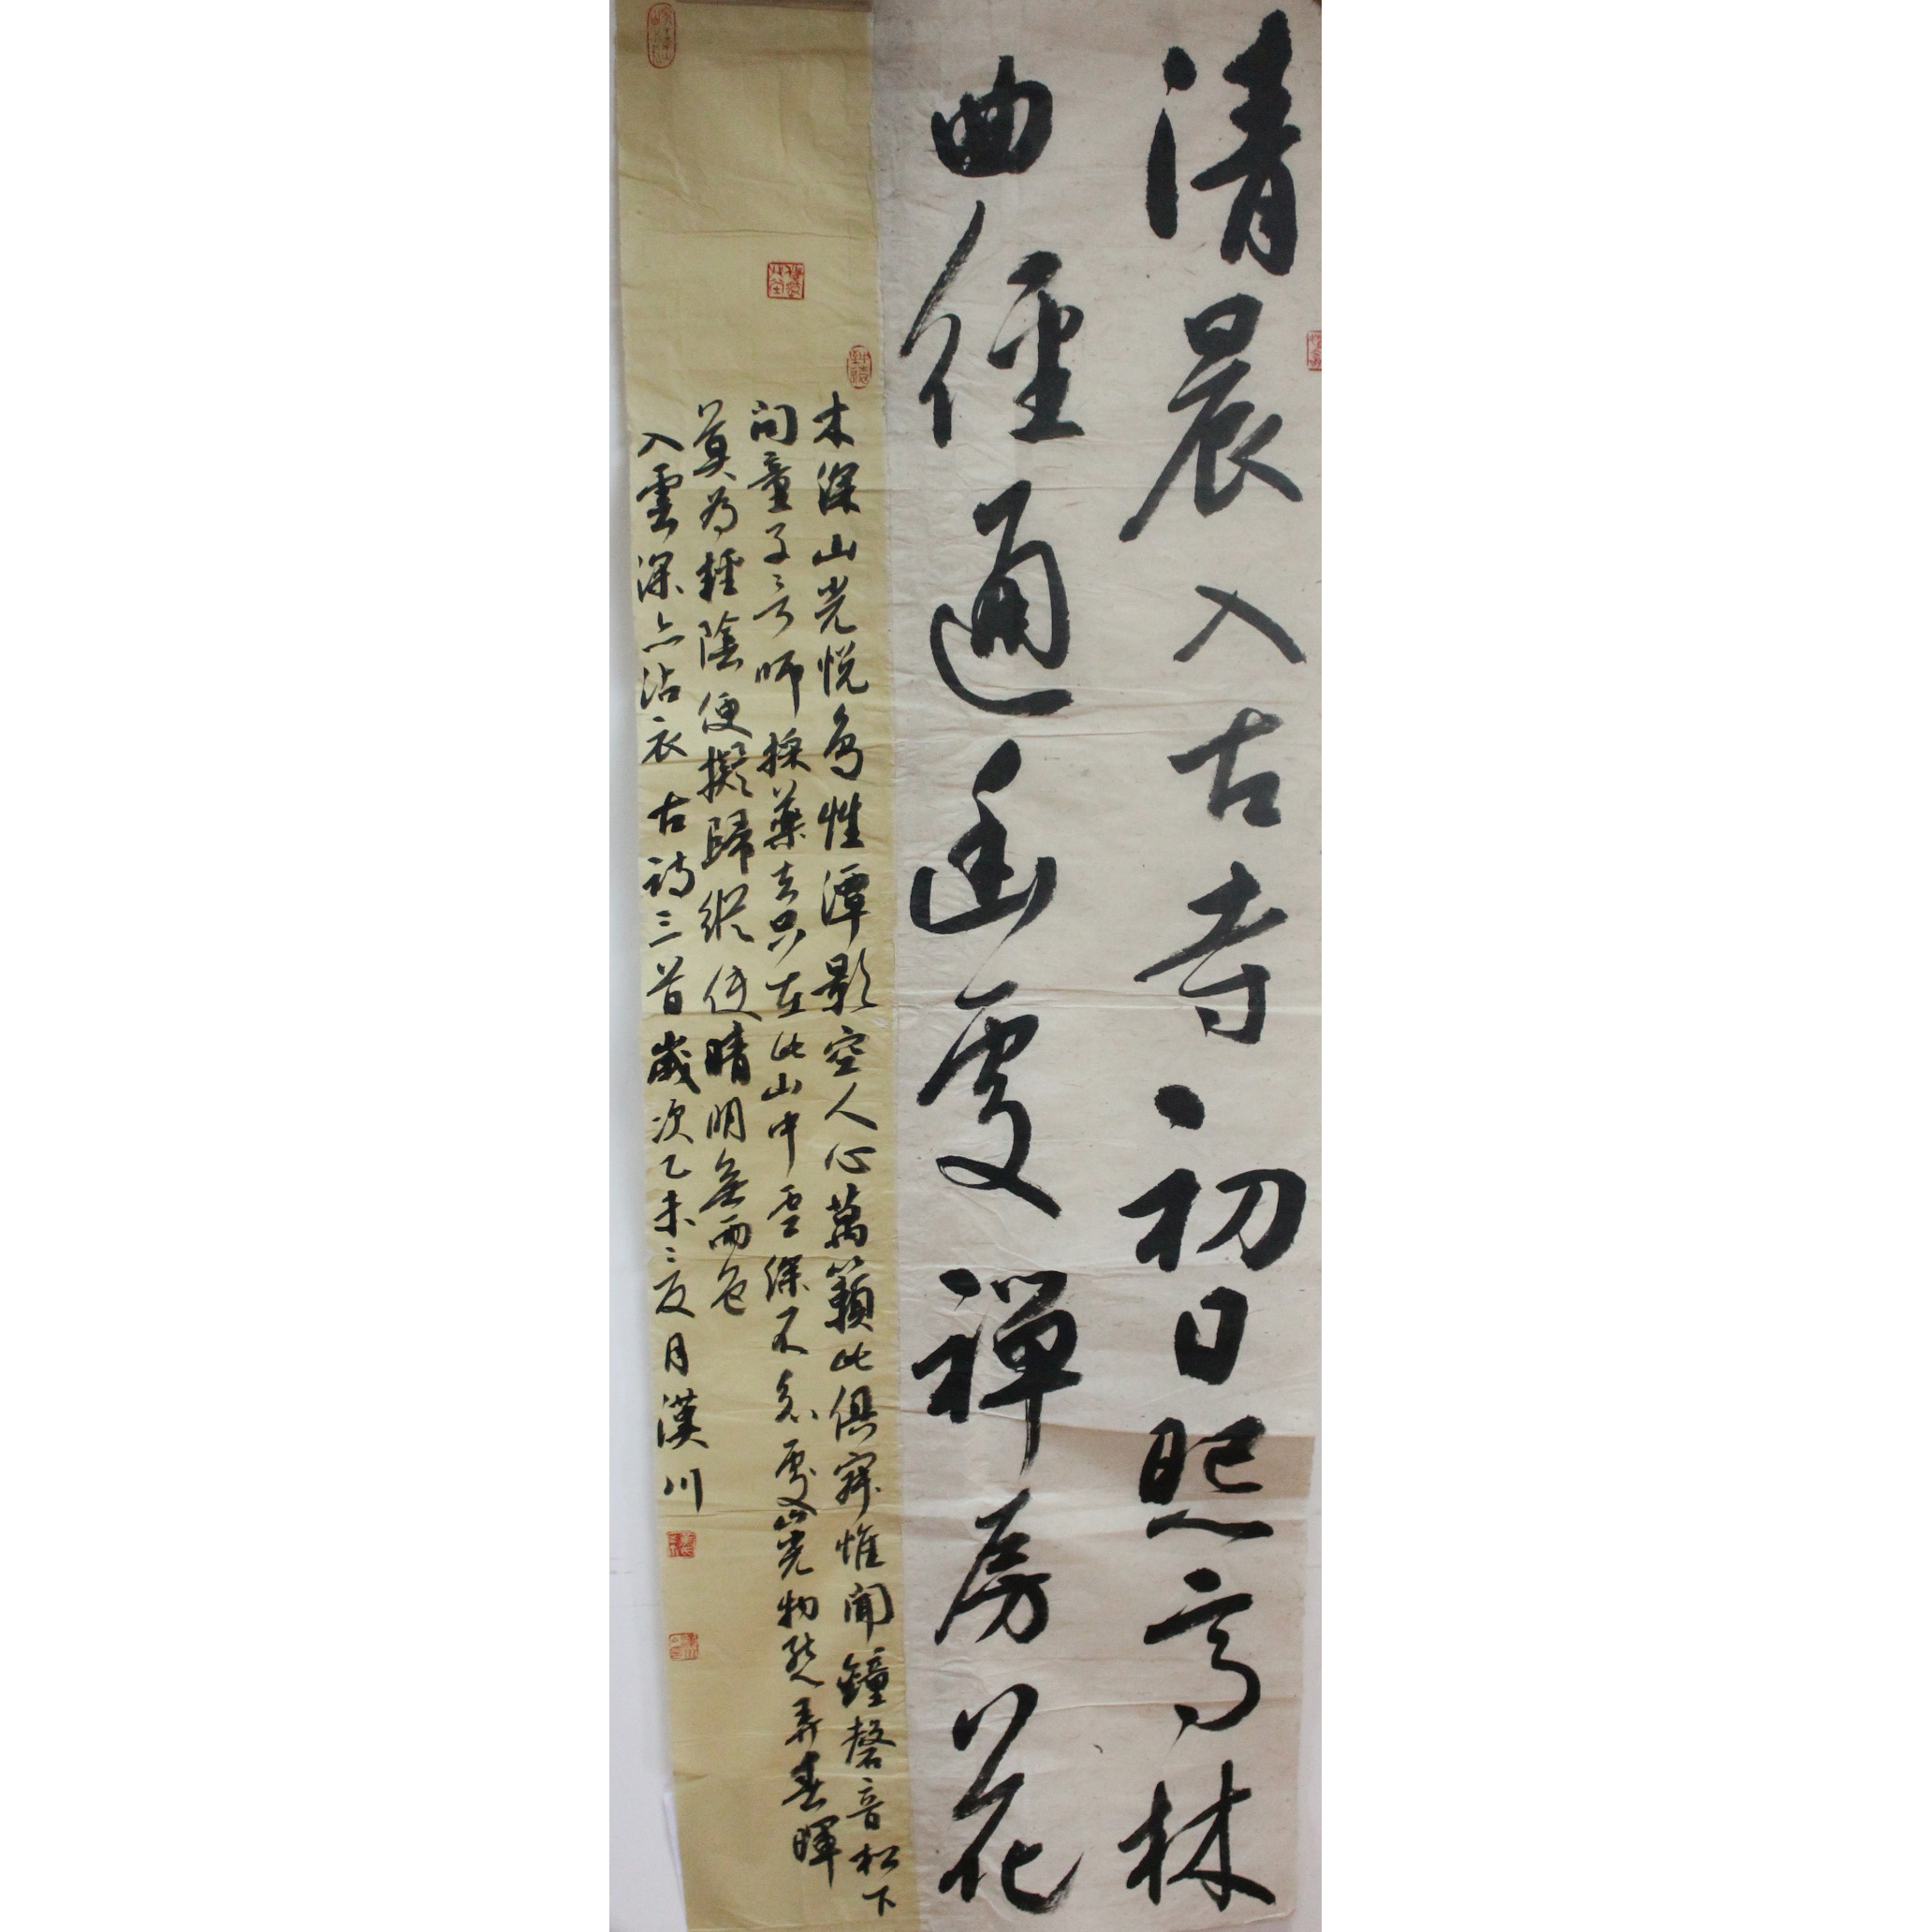 清晨入古寺初日照高林
曲径通幽處禅房花
木深山光悦鳥性潭影空人心萬籟此俱寂惟聞鐘磬音松下
问童子言师採藥去只在此山中雲深不知處山光物態弄春暉
莫为輕陰便擬歸縱使晴明無雨色
入雲深亦沾衣 古诗三首歲次乙未夏月漢川